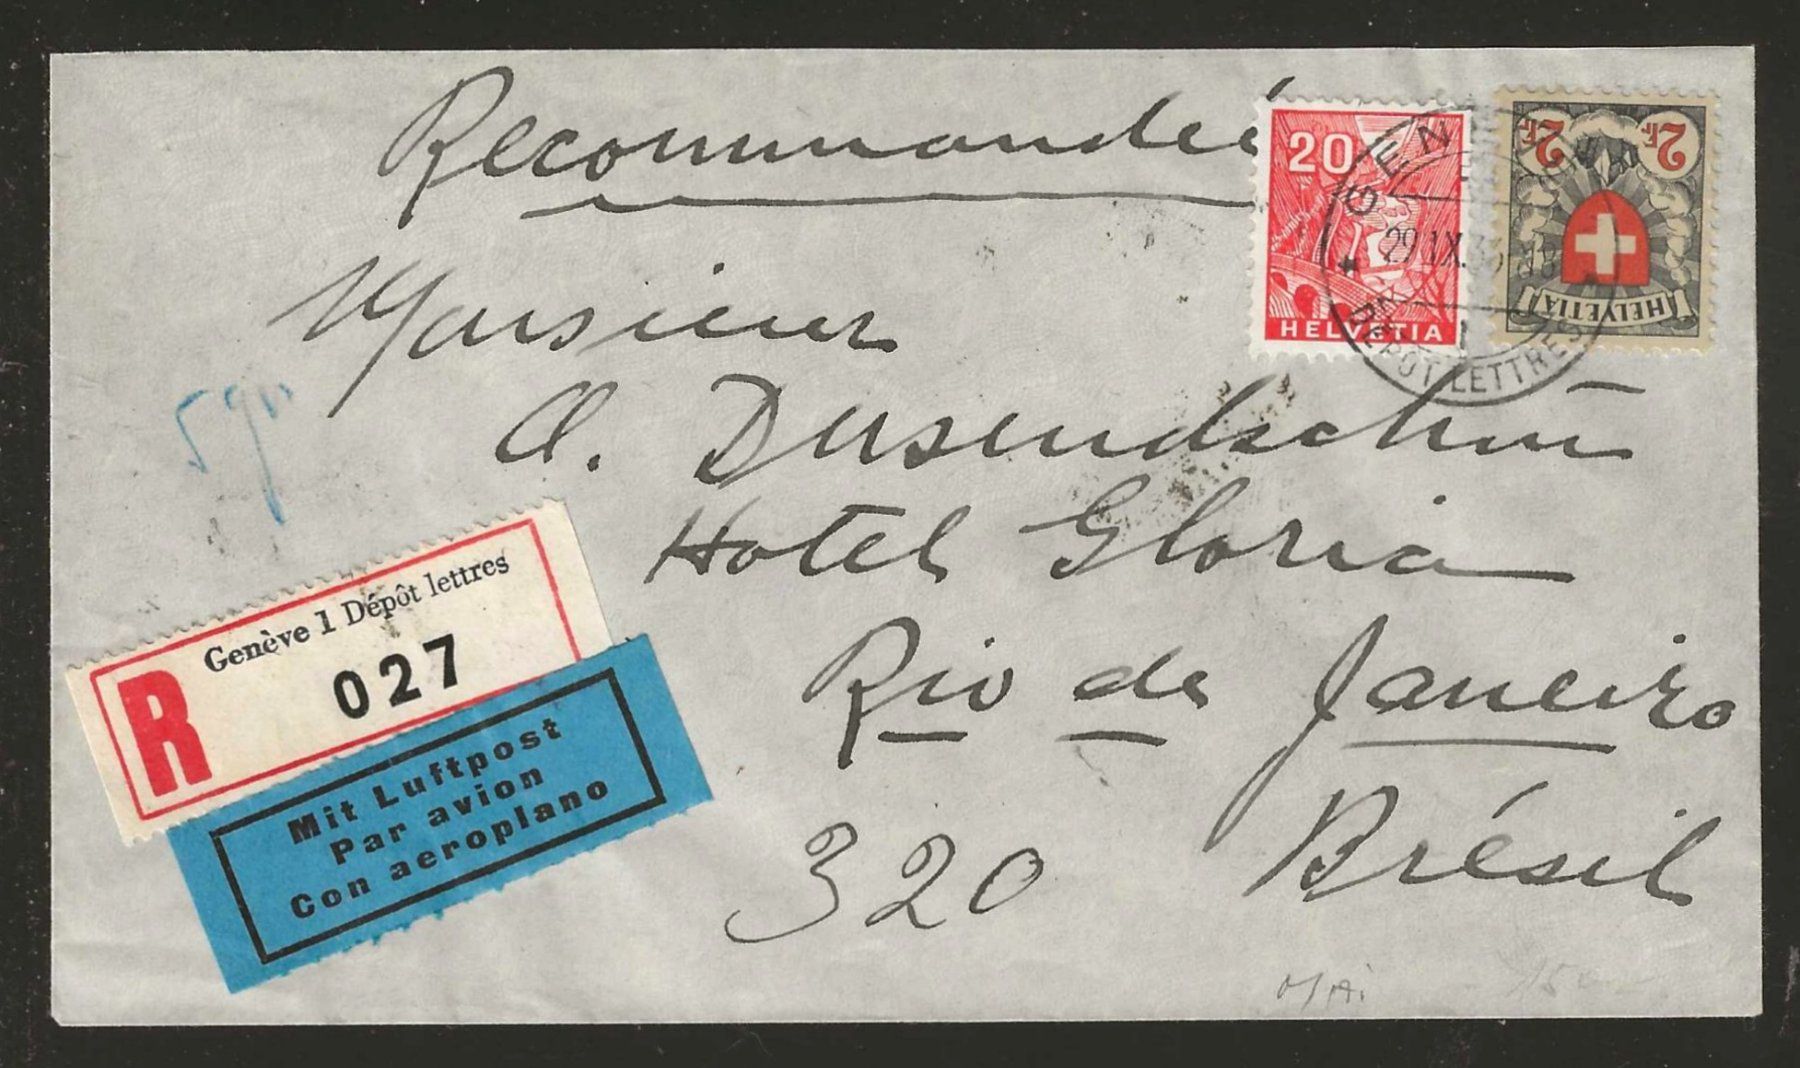 Recommandé
Monsieur
A. Dusendschön
Hotel Gloria
Rio de Janeiro
Brésil
320
5 gr
20
HELVETIA
2 Fr. 2 Fr.
HELVETIA
GEN
29.IX.
DÉPÔT LETTRES
Genève 1 Dépôt lettres
R
027
Mit Luftpost
Par avion
Con aeroplano